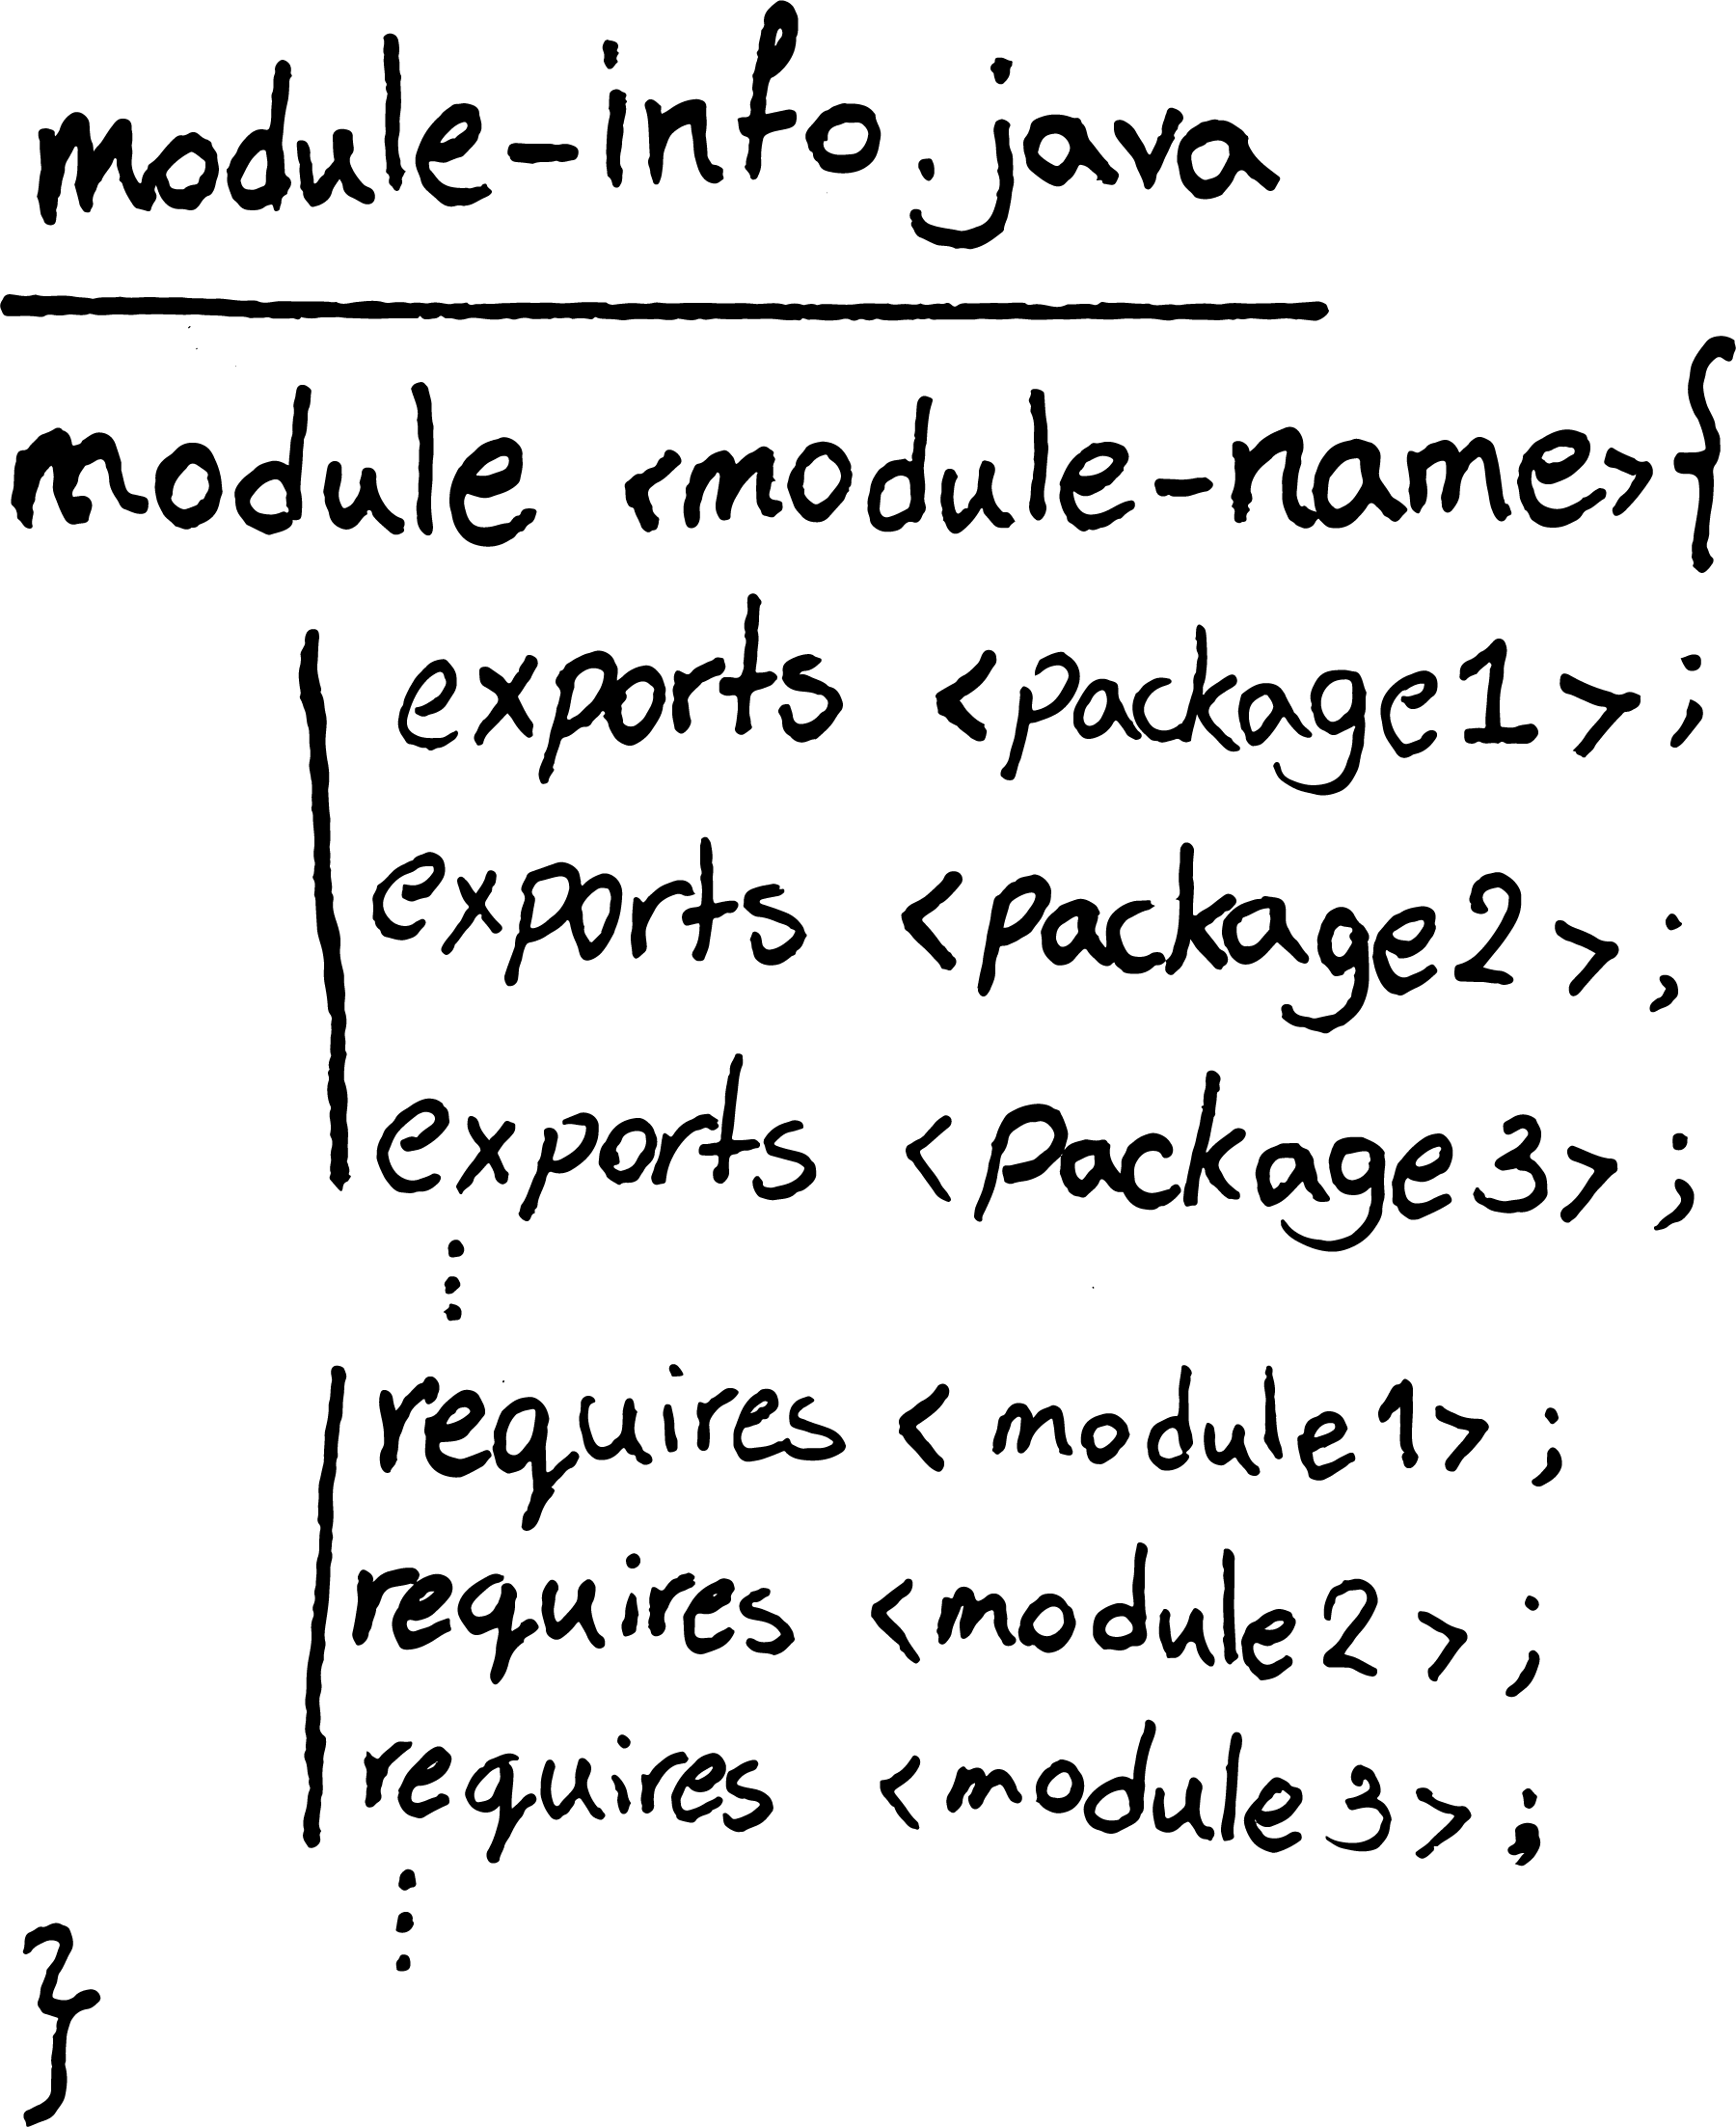 module-info.java
module <module-name>{
exports <package1>;
exports <package2>;
exports <package3>;
⋮
requires <module1>;
requires <module2>;
requires <module3>;
⋮
}